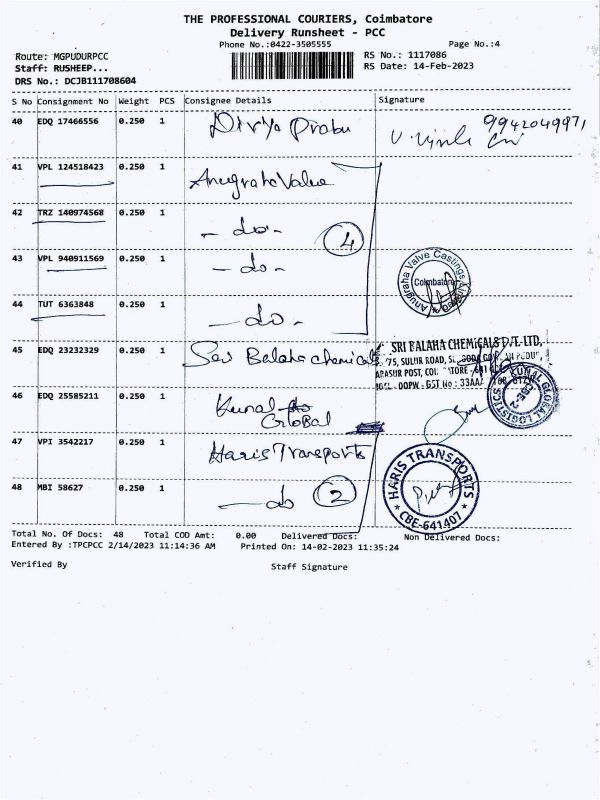 THE PROFESSIONAL COURIERS, Coimbatore
Delivery Runsheet - PCC
Phone No.:0422-3505555
Page No.:4
Route: MGPUDURPCC
Staff: RUSHEEP...
DRS No.: DCJB111708604
RS No.: 1117086
RS Date: 14-Feb-2023
S No Consignment No Weight PCS Consignee Details Signature
40 EDQ 17466556 0.250 1 Divya Prabu
9942049971
41 VPL 124518423 0.250 1 Anugraha Valve
42 TRZ 140974568 0.250 1 - do -
4
43 VPL 940911569 0.250 1 - do -
Anugraha Valve Castings
Coimbatore
44 TUT 6363848 0.250 1 - do -
45 EDQ 23232329 0.250 1 Sri Balaha chemicals
SRI BALAHA CHEMICALS PVT. LTD,
75, SULUR ROAD,
46 EDQ 25585211 0.250 1 Kunal
Global
KUNAL GLOBAL LOGISTICS
CBE-2
47 VPI 3542217 0.250 1 Haris Transports
HARIS TRANSPORTS
CBE-641407
48 MBI 58627 0.250 1 - do 2
Total No. Of Docs: 48 Total COD Amt: 0.00 Delivered Docs: Non Delivered Docs:
Entered By :TPCPCC 2/14/2023 11:14:36 AM Printed On: 14-02-2023 11:35:24
Verified By
Staff Signature